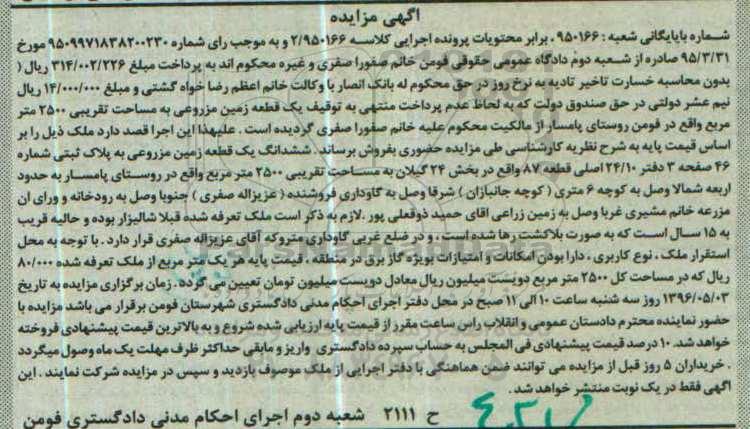 آگهی مزایده
شماره بایگانی شعبه : ۹۵۰۱۶۶ . برابر محتویات پرونده اجرایی کلاسه ۲/۹۵۰۱۶۶ و به موجب رای شماره ۹۵۰۹۹۷۱۸۳۸۲۰۰۲۳۰ مورخ
۹۵/۳/۳۱ صادره از شعبه دوم دادگاه عمومی حقوقی فومن خانم صفورا صفری و غیره محکوم اند به پرداخت مبلغ ۳۱۴/۰۰۲/۲۲۶ ریال (
بدون محاسبه خسارت تاخیر تادیه به نرخ روز در حق محکوم له بانک انصار با وکالت خانم اعظم رضا خواه گشتی و مبلغ ۱۴/۰۰۰/۰۰۰ ریال
نیم عشر دولتی در حق صندوق دولت که به لحاظ عدم پرداخت منتهی به توقیف یک قطعه زمین مزروعی به مساحت تقریبی ۲۵۰۰ متر
مربع واقع در فومن روستای پامسار از مالکیت محکوم علیه خانم صفورا صفری گردیده است . علیهذا این اجرا قصد دارد ملک ذیل را بر
اساس قیمت پایه به شرح نظریه کارشناسی طی مزایده حضوری بفروش برساند . ششدانگ یک قطعه زمین مزروعی به پلاک ثبتی شماره
۴۶ صفحه ۳ دفتر ۲۴/۱۰ اصلی قطعه ۸۷ واقع در بخش ۲۴ گیلان به مساحت تقریبی ۲۵۰۰ متر مربع واقع در روستای پامسار به حدود
اربعه شمالا وصل به کوچه ۶ متری ( کوچه جانبازان ) شرقا وصل به گاوداری فروشنده ( عزیزاله صفری ) جنوبا وصل به رودخانه و ورای ان
مزرعه خانم مشیری غربا وصل به زمین زراعی اقای حمید ذوقعلی پور .لازم به ذکر است ملک تعرفه شده قبلا شالیزار بوده و حالیه قریب
به ۱۵ سال است که به صورت بلاکشت رها شده است . و در ضلع غربی گاوداری متروکه آقای عزیزاله صفری قرار دارد . با توجه به محل
استقرار ملک ، نوع کاربری ، دارا بودن امکانات و امتیازات بویژه گاز برق در منطقه ، قیمت پایه هر یک متر مربع از ملک تعرفه شده ۸۰/۰۰۰
ریال که در مساحت کل ۲۵۰۰ متر مربع دویست میلیون ریال معادل دویست میلیون تومان تعیین می گردد . زمان برگزاری مزایده به تاریخ
۱۳۹۶/۰۵/۰۳ روز سه شنبه ساعت ۱۰ الی ۱۱ صبح در محل دفتر اجرای احکام مدنی دادگستری شهرستان فومن برقرار می باشد مزایده با
حضور نماینده محترم دادستان عمومی و انقلاب راس ساعت مقرر از قیمت پایه ارزیابی شده شروع و به بالاترین قیمت پیشنهادی فروخته
خواهد شد. ۱۰ درصد قیمت پیشنهادی فی المجلس به حساب سپرده دادگستری واریز و مابقی حداکثر ظرف مهلت یک ماه وصول میگردد
. خریداران ۵ روز قبل از مزایده می توانند ضمن هماهنگی با دفتر اجرایی از ملک موصوف بازدید و سپس در مزایده شرکت نمایند . این
اگهی فقط در یک نوبت منتشر خواهد شد .
ح ۲۱۱۱ شعبه دوم اجرای احکام مدنی دادگستری فومن